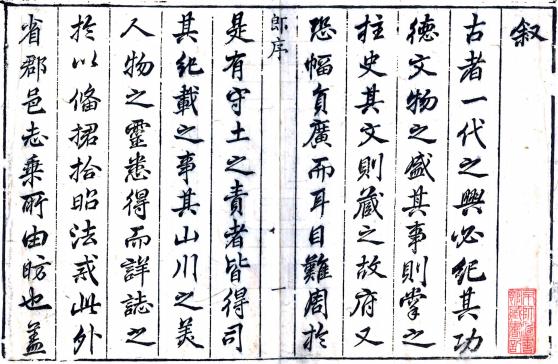 叙
古者一代之興必紀其功
德文物之盛其事則掌之
柱史其文則蔵之故府又
恐幅負廣而耳目難周於
郎序
一
是有守土之責者皆得司
其紀載之事其山川之美
人物之靈悉得而詳誌之
於以俻捃拾昭法戒此外
省郡邑志乗所由昉也盖